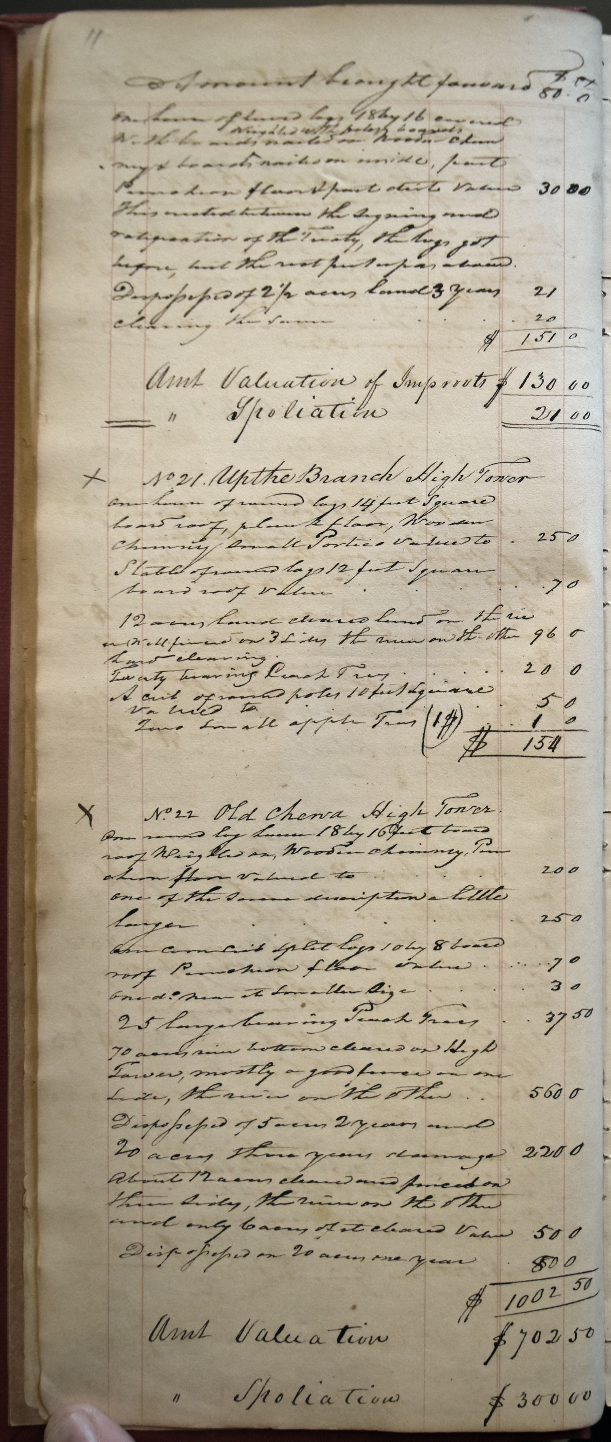 11
Amount brought forward $ ct
80. 0
one house of hewd logs 18 by 16 covered
Weighted with poles boards
With boards nailed on Wooden Chim
ney & boards nailed on inside, part
Puncheon floor & part dirt Value 30 00
This erected between the signing and
ratification of the Treaty, the logs got
before, but the rest put up as above.
Dispossessed of 2 1/2 acres land 3 years 21
clearing the same 20
$ 151 0
Amt Valuation of Improvts $ 130 00
" Spoliation 21 00
X No 21. Up the Branch High Tower
one house of round logs 14 feet Square
board roof, plank floor, Wooden
Chimney Small Portico Valued to 25 0
Stable of round logs 12 feet Square
board roof Value 7 0
12 acres land cleared land on the riv
er Well fenced on 3 Sides the river on the other 96 0
hard clearing.
Twenty bearing Peach Trees 20 0
A crib of round poles 10 feet Square
Valued to 5 0
Two Small apple Trees (1$) 1 0
$ 154
X No. 22 Old Chewa High Tower.
One round log house 18 by 16 feet board
roof Weighted on, Wooden Chimney, Pun
cheon floor Valued to 20 0
one of the same description a little
larger 25 0
one corn crib split logs 10 by 8 board
roof Puncheon floor Value 7 0
one do. near it smaller size 3 0
25 large bearing Peach Trees 37 50
70 acres river bottom cleared on High
Tower, mostly a good fence on one
Side, the river on the other 560 0
Dispossessed of 5 acres 2 years and
20 acres three years damage 220 0
About 12 acres cleared and fenced on
three Sides, the river on the other
and only 6 acres of it cleared Value 50 0
Dispossessed on 20 acres one year 80 0
$ 1002 50
Amt Valuation $ 702 50
" Spoliation $ 300 00